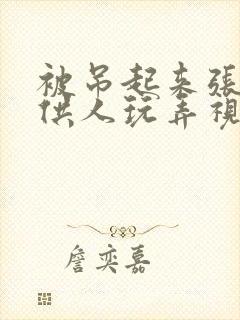 被吊起来張
供人玩弄視
詹奕嘉